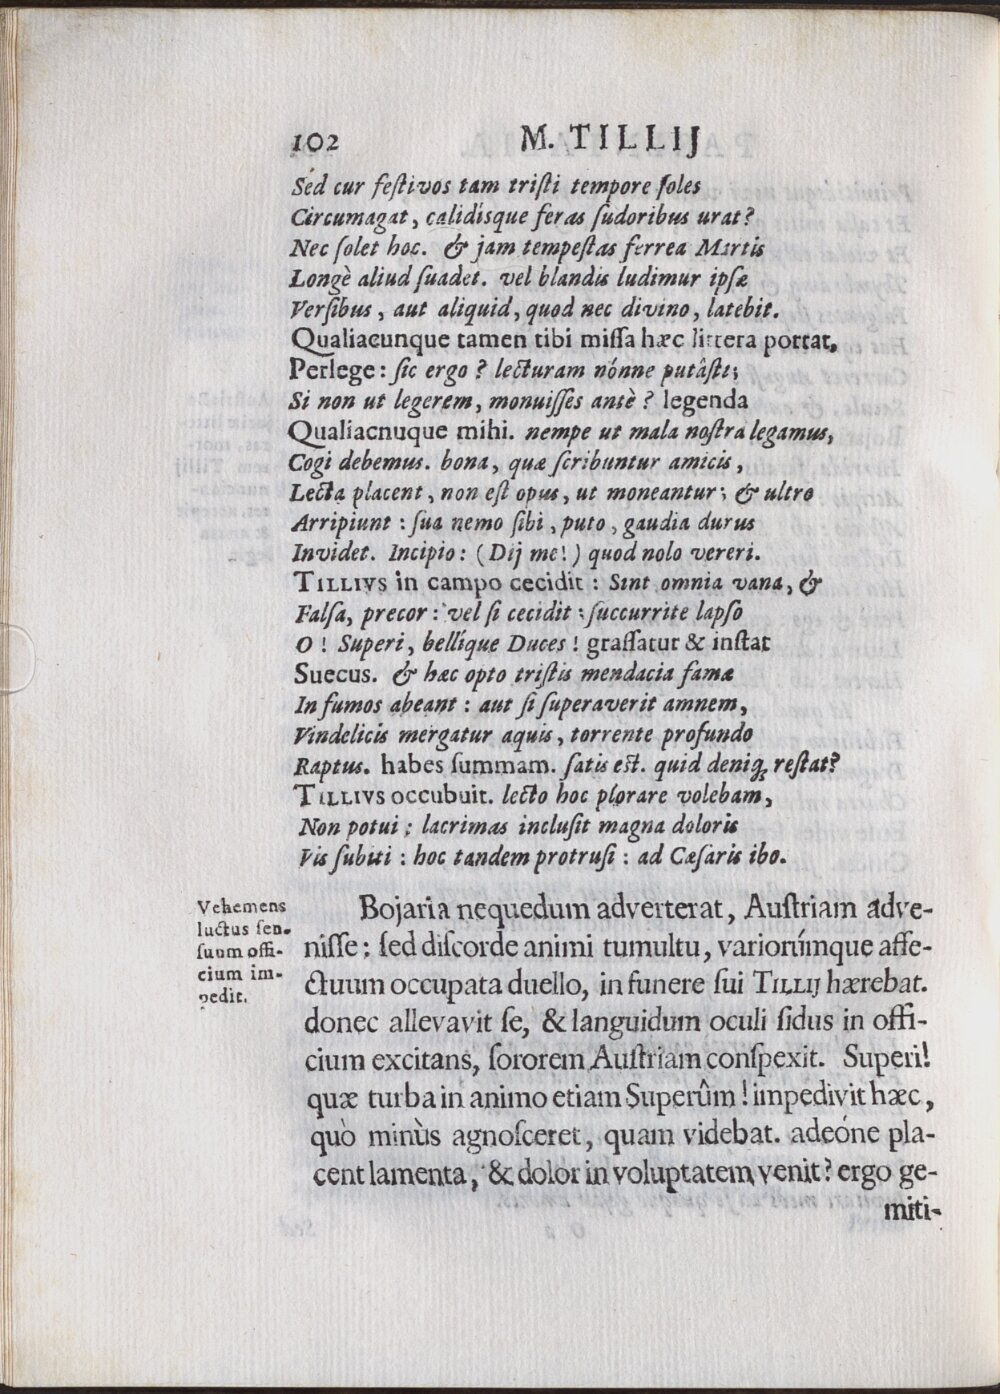 102 M. TILLIJ
Sed cur festivos tam tristi tempore soles
Circumagat, calidisque feras sudoribus urat?
Nec solet hoc. & jam tempestas ferrea Martis
Longè aliud suadet. vel blandis ludimur ipsæ
Versibus, aut aliquid, quod nec divino, latebit.
Qualiacunque tamen tibi missa hæc littera portat,
Perlege: sic ergo? lecturam nónne putâsti;
Si non ut legerem, monuisses antè? legenda
Qualiacnuque mihi. nempe ut mala nostra legamus,
Cogi debemus. bona, quæ scribuntur amicis,
Lecta placent, non est opus, ut moneantur; & ultro
Arripiunt: sua nemo sibi, puto, gaudia durus
Invidet. Incipio: (Dij me!) quod nolo vereri.
TILLIVS in campo cecidit: Sint omnia vana, &
Falsa, precor: vel si cecidit: succurrite lapso
O! Superi, bellíque Duces! grassatur & instat
Suecus. & hæc opto tristis mendacia famæ
In fumos abeant: aut si superaverit amnem,
Vindelicis mergatur aquis, torrente profundo
Raptus. habes summam. satis est. quid deniq; restat?
TILLIVS occubuit. lecto hoc plorare volebam,
Non potui; lacrimas inclusit magna doloris
Vis subiti: hoc tandem protrusi: ad Cæsaris ibo.
Vehemens
luctus sen-
suum offi-
cium im-
pedit.
Bojaria nequedum adverterat, Austriam adve-
nisse: sed discorde animi tumultu, variorúmque affe-
ctuum occupata duello, in funere sui TILLIJ hærebat.
donec allevavit se, & languidum oculi sidus in offi-
cium excitans, sororem Austriam conspexit. Superi!
quæ turba in animo etiam Superûm! impedivit hæc,
quò minùs agnosceret, quam videbat. adeóne pla-
cent lamenta, & dolor in voluptatem venit? ergo ge-
miti-